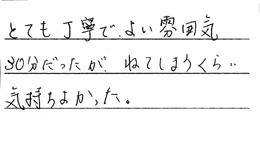 とても丁寧で、よい雰囲気
30分だったが、ねてしまうくらい
気持ちよかった。